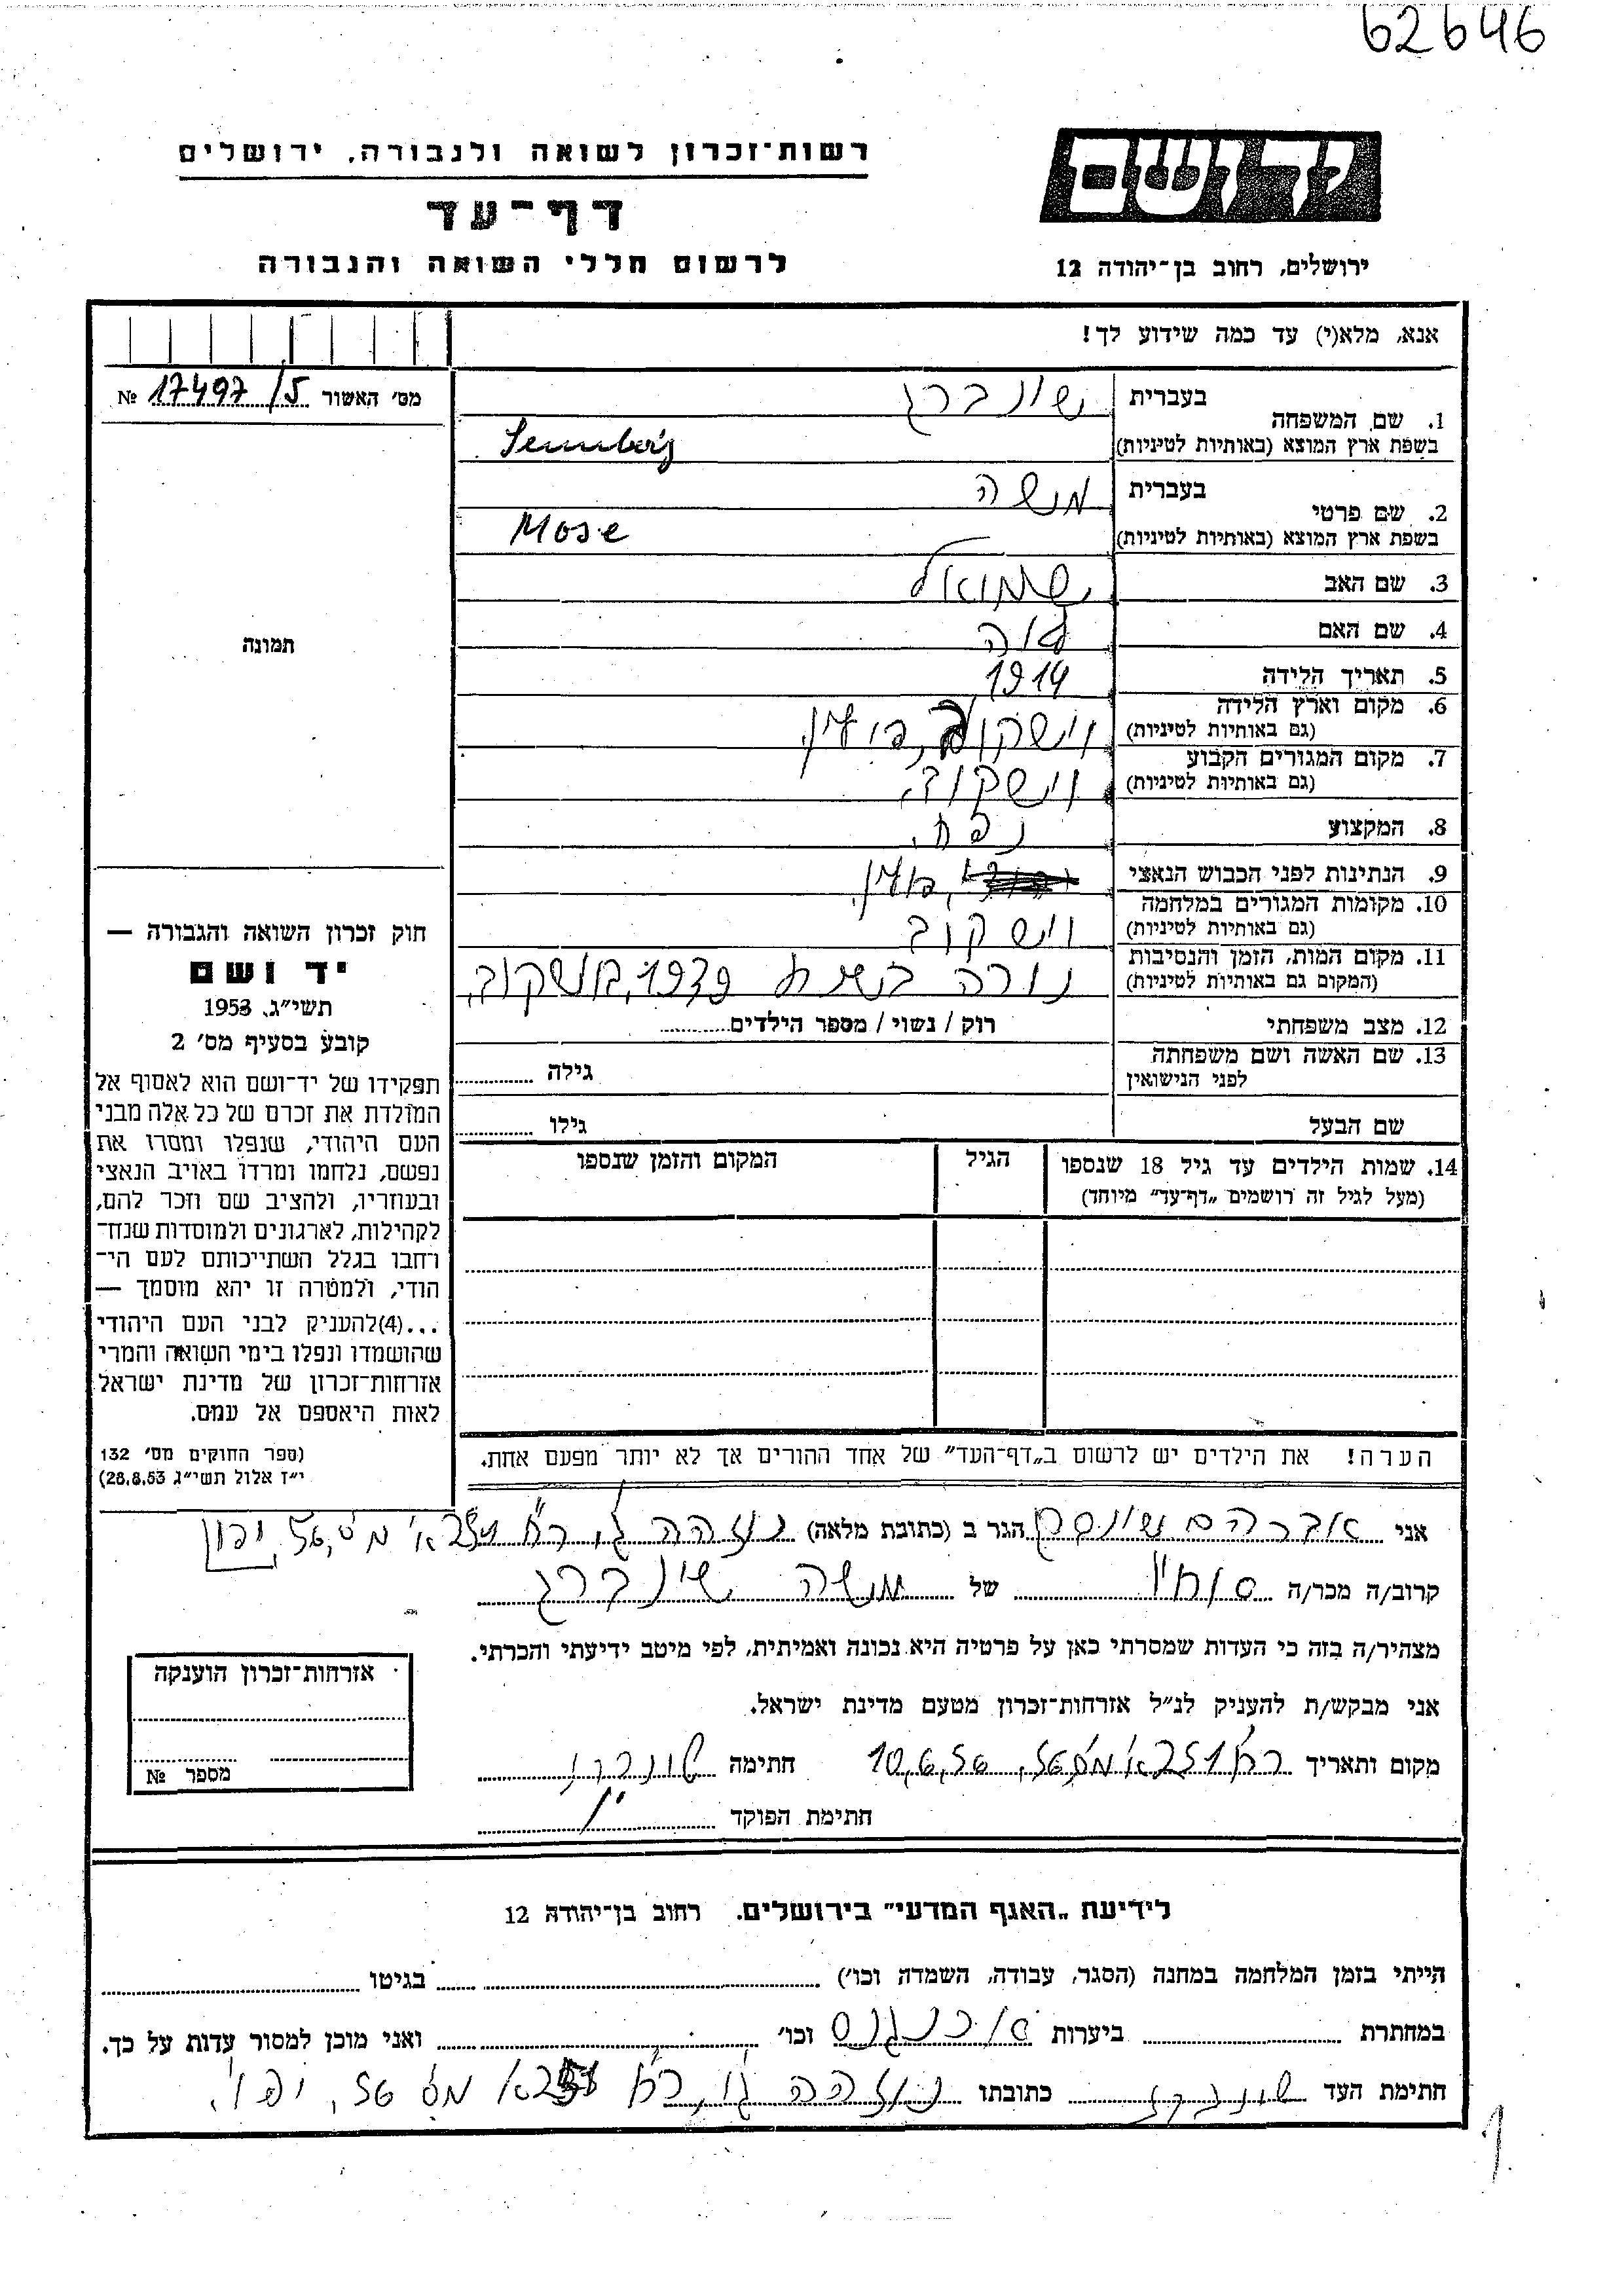 62646
יד ושם
רשות־זכרון לשואה ולגבורה, ירושלים
דף־עד
לרשום חללי השואה והגבורה
ירושלים, רחוב בן־יהודה 12
אנא, מלא(י) עד כמה שידוע לך!
מס' האשור 17497/5 №
תמונה
חוק זכרון השואה והגבורה —
יד ושם
תשי"ג, 1953
קובע בסעיף מס' 2
תפקידו של יד־ושם הוא לאסוף אל
המולדת את זכרם של כל אלה מבני
העם היהודי, שנפלו ומסרו את
נפשם, נלחמו ומרדו באויב הנאצי
ובעוזריו, ולהציב שם וזכר להם,
לקהילות, לארגונים ולמוסדות שנח־
רחבו בגלל השתייכותם לעם הי־
הודי, ולמטרה זו יהא מוסמך —
...(4)להעניק לבני העם היהודי
שהושמדו ונפלו בימי השואה והמרי
אזרחות־זכרון של מדינת ישראל
לאות היאספם אל עמם.
(ספר החוקים מס' 132
י"ז אלול תשי"ג 28.8.53)
1. שם המשפחה בעברית שונברג
בשפת ארץ המוצא (באותיות לטיניות)
2. שם פרטי בעברית משה
בשפת ארץ המוצא (באותיות לטיניות) Mose
3. שם האב שמואל
4. שם האם
5. תאריך הלידה 1914
6. מקום וארץ הלידה
(גם באותיות לטיניות)
7. מקום המגורים הקבוע
(גם באותיות לטיניות) וישקוב,
8. המקצוע נפח.
9. הנתינות לפני הכבוש הנאצי
10. מקומות המגורים במלחמה
(גם באותיות לטיניות) וישקוב
11. מקום המות, הזמן והנסיבות
(המקום גם באותיות לטיניות) נורה בשנת 1939,
12. מצב משפחתי רוק / נשוי / מספר הילדים
13. שם האשה ושם משפחתה
לפני הנישואין גילה
שם הבעל גילו
14. שמות הילדים עד גיל 18 שנספו הגיל המקום והזמן שנספו
(מעל לגיל זה רושמים „דף־עד" מיוחד)
הערה! את הילדים יש לרשום ב„דף־העד" של אחד ההורים אך לא יותר מפעם אחת.
אני אברהם הגר ב (כתובת מלאה) יפו
קרוב/ה מכר/ה של משה שונברג
מצהיר/ה בזה כי העדות שמסרתי כאן על פרטיה היא נכונה ואמיתית, לפי מיטב ידיעתי והכרתי.
אני מבקש/ת להעניק לנ"ל אזרחות־זכרון מטעם מדינת ישראל.
מקום ותאריך 10,6,56 חתימה
חתימת הפוקד
אזרחות־זכרון הוענקה
מספר №
לידיעת „האגף המדעי" בירושלים. רחוב בן־יהודה 12
הייתי בזמן המלחמה במחנה (הסגר, עבודה, השמדה וכו') בגיטו
במחתרת ביערות וכו' ואני מוכן למסור עדות על כך.
חתימת העד כתובתו יפו.